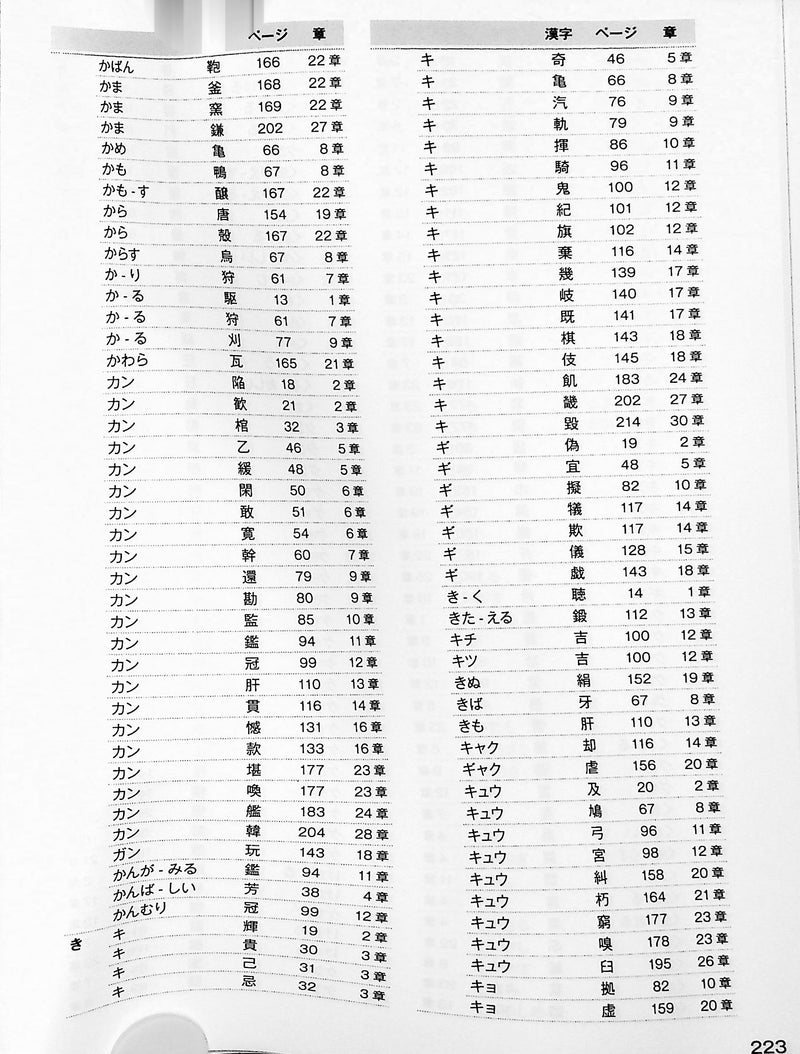 ページ 章
かばん 鞄 166 22章
かま 釜 168 22章
かま 窯 169 22章
かま 鎌 202 27章
かめ 亀 66 8章
かも 鴨 67 8章
かも-す 醸 167 22章
から 唐 154 19章
から 殻 167 22章
からす 烏 67 8章
か-り 狩 61 7章
か-る 駆 13 1章
か-る 狩 61 7章
か-る 刈 77 9章
かわら 瓦 165 21章
カン 陥 18 2章
カン 歓 21 2章
カン 棺 32 3章
カン 乙 46 5章
カン 緩 48 5章
カン 閑 50 6章
カン 敢 51 6章
カン 寛 54 6章
カン 幹 60 7章
カン 還 79 9章
カン 勘 80 9章
カン 監 85 10章
カン 鑑 94 11章
カン 冠 99 12章
カン 肝 110 13章
カン 貫 116 14章
カン 憾 131 16章
カン 款 133 16章
カン 堪 177 23章
カン 喚 177 23章
カン 艦 183 24章
カン 韓 204 28章
ガン 玩 143 18章
かんが-みる 鑑 94 11章
かんば-しい 芳 38 4章
かんむり 冠 99 12章
き
キ 輝 19 2章
キ 貴 30 3章
キ 己 31 3章
キ 忌 32 3章
漢字 ページ 章
キ 奇 46 5章
キ 亀 66 8章
キ 汽 76 9章
キ 軌 79 9章
キ 揮 86 10章
キ 騎 96 11章
キ 鬼 100 12章
キ 紀 101 12章
キ 旗 102 12章
キ 棄 116 14章
キ 幾 139 17章
キ 岐 140 17章
キ 既 141 17章
キ 棋 143 18章
キ 伎 145 18章
キ 飢 183 24章
キ 畿 202 27章
キ 毀 214 30章
ギ 偽 19 2章
ギ 宜 48 5章
ギ 擬 82 10章
ギ 犠 117 14章
ギ 欺 117 14章
ギ 儀 128 15章
ギ 戯 143 18章
き-く 聴 14 1章
きた-える 鍛 112 13章
キチ 吉 100 12章
キツ 吉 100 12章
きぬ 絹 152 19章
きば 牙 67 8章
きも 肝 110 13章
キャク 却 116 14章
ギャク 虐 156 20章
キュウ 及 20 2章
キュウ 鳩 67 8章
キュウ 弓 96 11章
キュウ 宮 98 12章
キュウ 糾 158 20章
キュウ 朽 164 21章
キュウ 窮 177 23章
キュウ 嗅 178 23章
キュウ 臼 195 26章
キョ 拠 82 10章
キョ 虚 159 20章
223